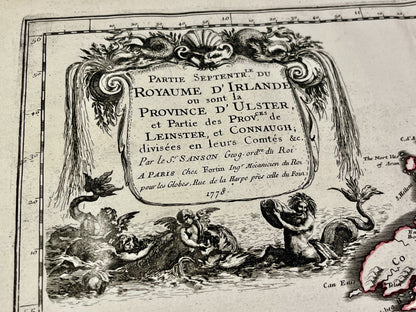 PARTIE SEPTENTR.LE DU
ROYAUME D'IRLANDE
ou sont la
PROVINCE D'ULSTER,
et Partie des PROV.CES de
LEINSTER, et CONNAUGH,
divisées en leurs Comtés &c.
Par le Sr. SANSON Geog. ordre. du Roi
A PARIS Chez Fortin Ingr. Mécanicien du Roi
pour les Globes, Rue de la Harpe près celle du Foin.
1778.
The North
of Aran
Can
Co